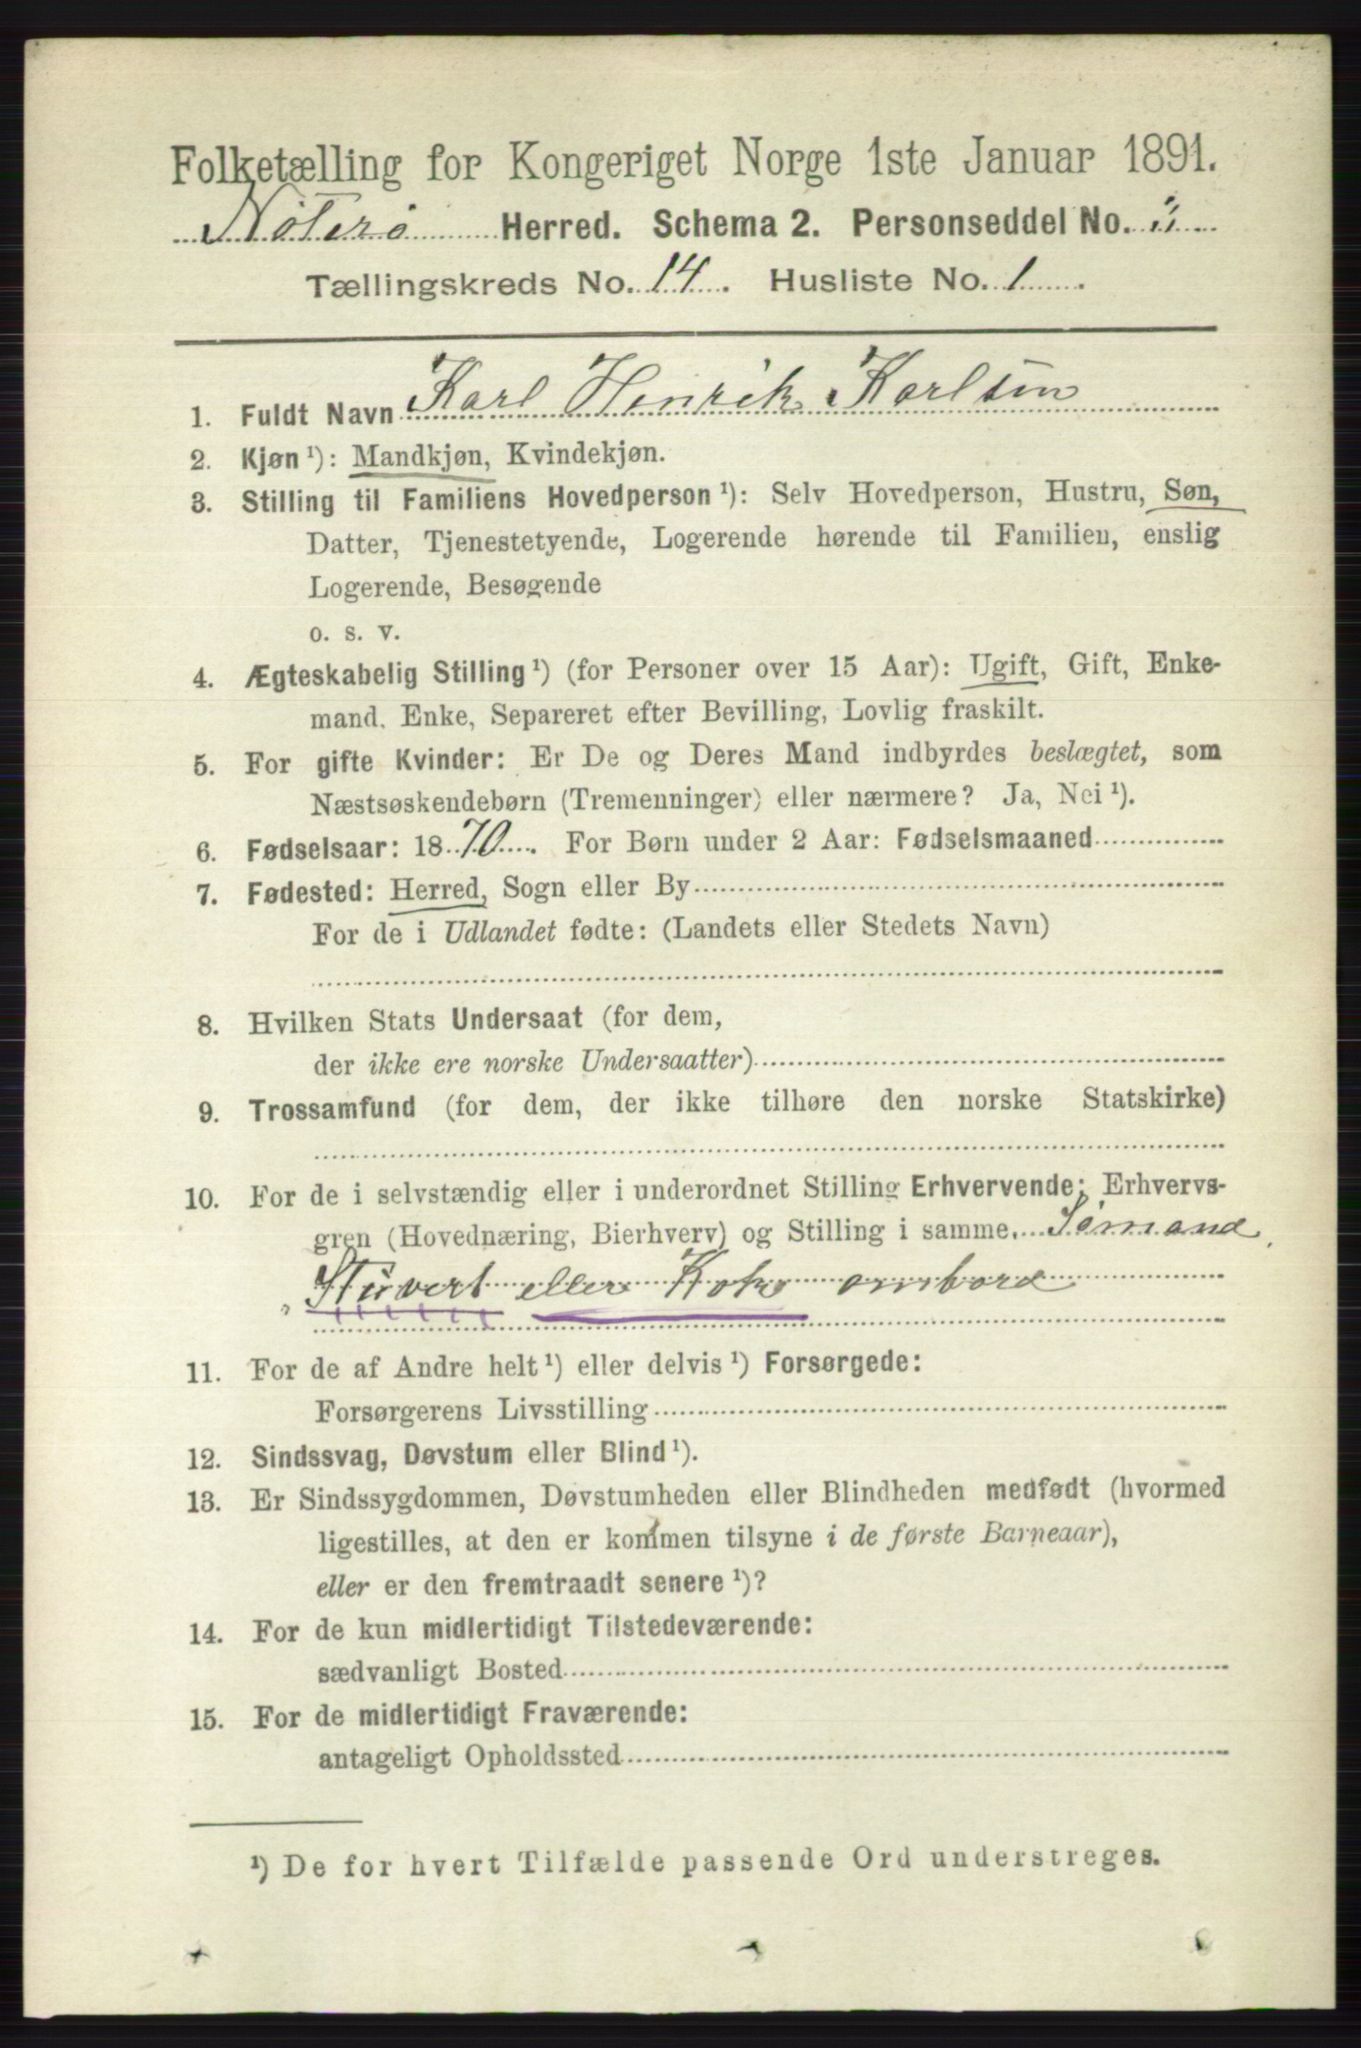 Folketælling for Kongeriget Norge 1ste Januar 1891.
Nøterø Herred. Schema 2. Personseddel No.
Tællingskreds No. 14. Husliste No. 1.
1. Fuldt Navn Karl Henrik Karlsen
2. Kjøn ¹): Mandkjøn, Kvindekjøn.
3. Stilling til Familiens Hovedperson ¹): Selv Hovedperson, Hustru, Søn,
Datter, Tjenestetyende, Logerende hørende til Familien, enslig
Logerende, Besøgende
o. s. v.
4. Ægteskabelig Stilling ¹) (for Personer over 15 Aar): Ugift, Gift, Enke-
mand, Enke, Separeret efter Bevilling, Lovlig fraskilt.
5. For gifte Kvinder: Er De og Deres Mand indbyrdes beslægtet, som
Næstsøskendebørn (Tremenninger) eller nærmere? Ja, Nei ¹).
6. Fødselsaar: 1870. For Børn under 2 Aar: Fødselsmaaned
7. Fødested: Herred, Sogn eller By
For de i Udlandet fødte: (Landets eller Stedets Navn)
8. Hvilken Stats Undersaat (for dem,
der ikke ere norske Undersaatter)
9. Trossamfund (for dem, der ikke tilhøre den norske Statskirke)
10. For de i selvstændig eller i underordnet Stilling Erhvervende: Erhvervs-
gren (Hovednæring, Bierhverv) og Stilling i samme. Sømand,
Stuvert eller Kok ombord
11. For de af Andre helt ¹) eller delvis ¹) Forsørgede:
Forsørgerens Livsstilling
12. Sindssvag, Døvstum eller Blind ¹).
13. Er Sindssygdommen, Døvstumheden eller Blindheden medfødt (hvormed
ligestilles, at den er kommen tilsyne i de første Barneaar),
eller er den fremtraadt senere ¹)?
14. For de kun midlertidigt Tilstedeværende:
sædvanligt Bosted
15. For de midlertidigt Fraværende:
antageligt Opholdssted
¹) De for hvert Tilfælde passende Ord understreges.